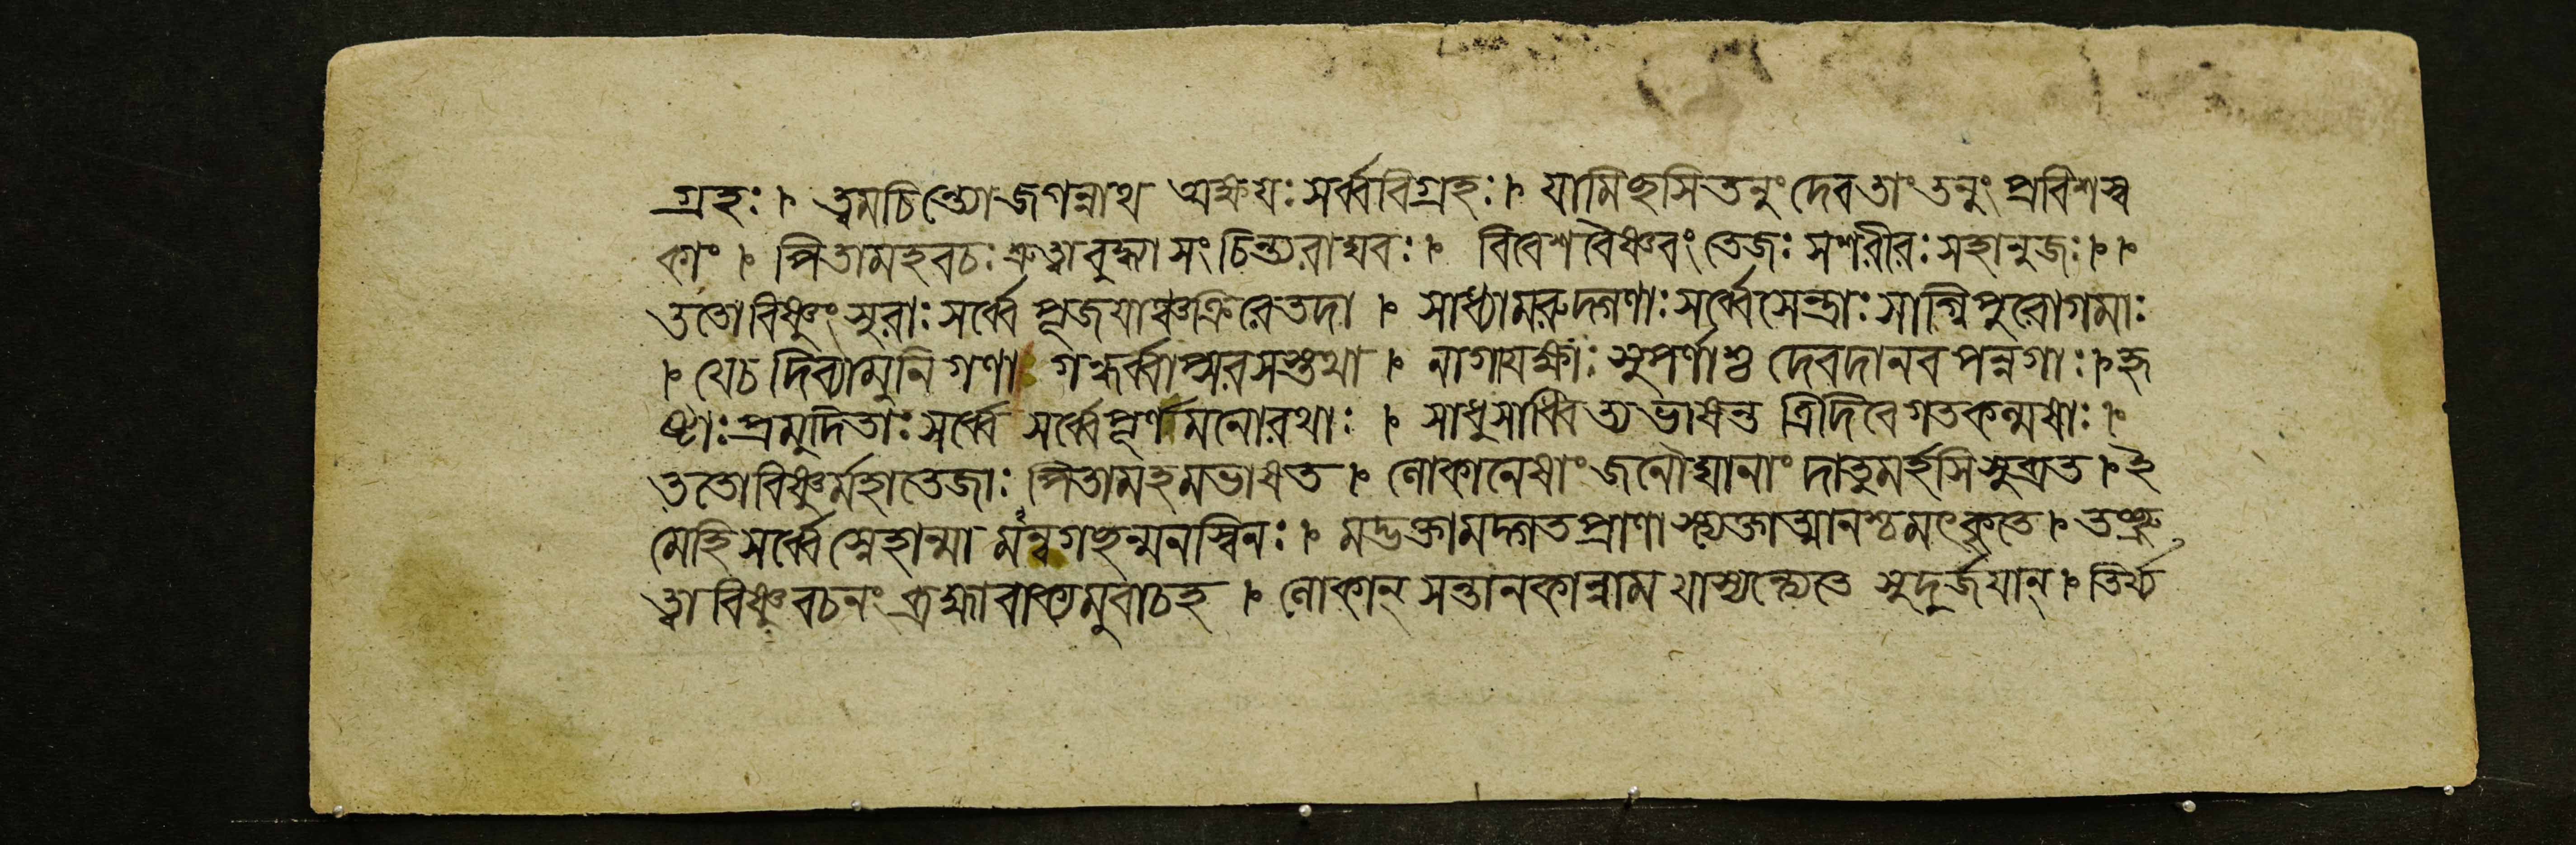 গ্রহঃ । ত্বমচিন্ত্যোজগন্নাথ অক্ষয়ঃ সর্ব্ববিগ্রহঃ । যামিছসি তনুং দেব তাং তনুং প্রবিশস্ব
কাং । পিতামহবচঃ শ্রুত্বা বুদ্ধ্যা সংচিন্ত্য রাঘবঃ । বিবেশ বৈষ্ণবং তেজঃ সশরীরঃ সহানুজঃ । ।
ততো বিষ্ণুং সুরাঃ সর্ব্বে পূজয়াঞ্চক্রিরে তদা । সাধ্যা মরুদ্গণাঃ সর্ব্বে সেন্দ্রাঃ সাগ্নিপুরোগমাঃ
। যে চ দিব্যা মুনিগণা গন্ধর্ব্বাপ্সরসস্তথা । নাগা যক্ষাঃ সুপর্ণাশ্চ দেবদানবপন্নগাঃ । হৃ
ষ্টাঃ প্রমুদিতাঃ সর্ব্বে সর্ব্বে পূর্ণমনোরথাঃ । সাধু সাধ্বিত্যভাষন্ত ত্রিদিবে গতকল্মষাঃ ।
ততো বিষ্ণুর্মহাতেজাঃ পিতামহমভাষত । লোকানেষাং জনৌঘানাং দাতুমর্হসি সুব্রত । ই
মে হি সর্ব্বে স্নেহান্মামন্বগছন্মনস্বিনঃ । মদ্ভক্তা মদ্গতপ্রাণাস্ত্যক্তাত্মানশ্চ মৎকৃতে । তৎশ্রু
ত্বা বিষ্ণুবচনং ব্রহ্মা বাক্যমুবাচ হ । লোকান্ সন্তানকান্নাম যাস্যন্ত্যেতে সুদুর্জয়ান্ । তির্য্য